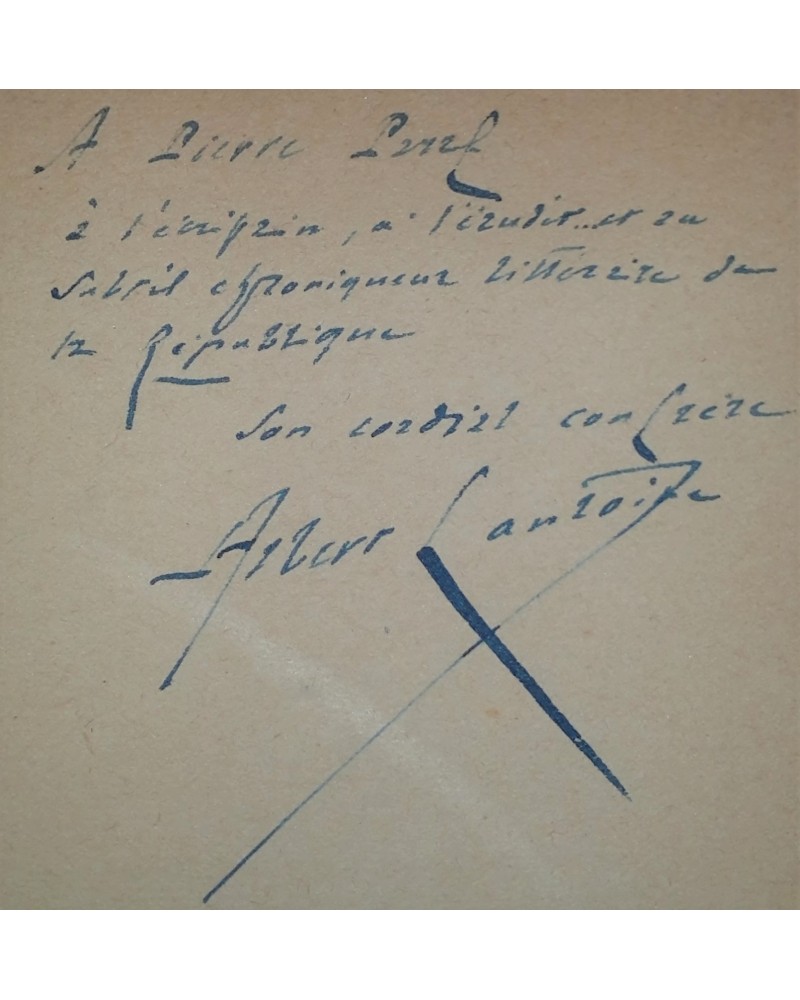 A Pierre Paraf
à l'écrivain, à l'érudit... et au
subtil chroniqueur littéraire de
la République
son cordial confrère
Albert Lantoine